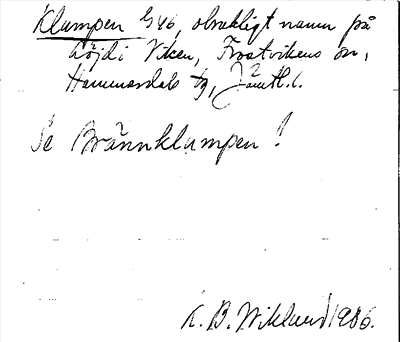 Klumpen G46, obrukligt namn på
höjd i Viken, Frostvikens sn,
Hammerdals tg, Jämtl. l.
Se Brännklumpen!
K. B. Wiklund 1906.